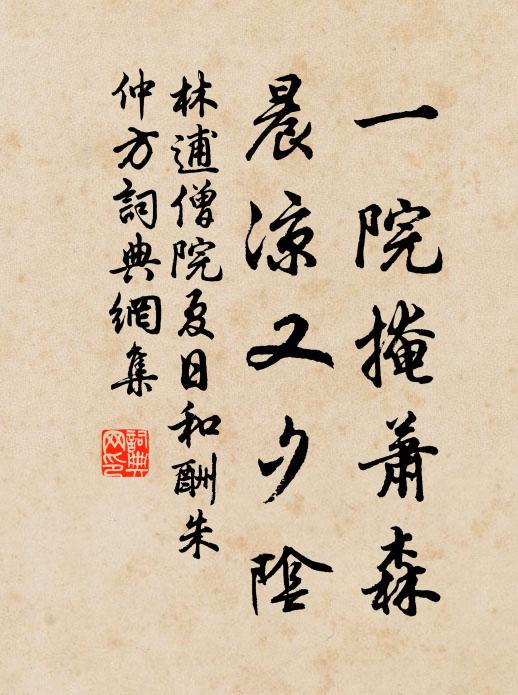 一院掩蕭森
晨涼又夕陰
林逋僧院夏日和酬朱
仲方詞典網集
詞典网印